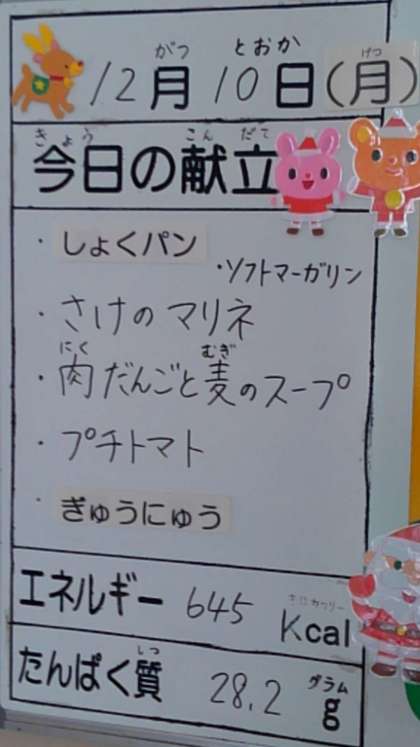 がつ とおか
12月10日(月)
げつ
きょう こんだて
今日の献立
・しょくパン
・ソフトマーガリン
・さけのマリネ
にく むぎ
・肉だんごと麦のスープ
・プチトマト
・ぎゅうにゅう
エネルギー 645 Kcal
キロカロリー
しつ グラム
たんぱく質 28.2 g